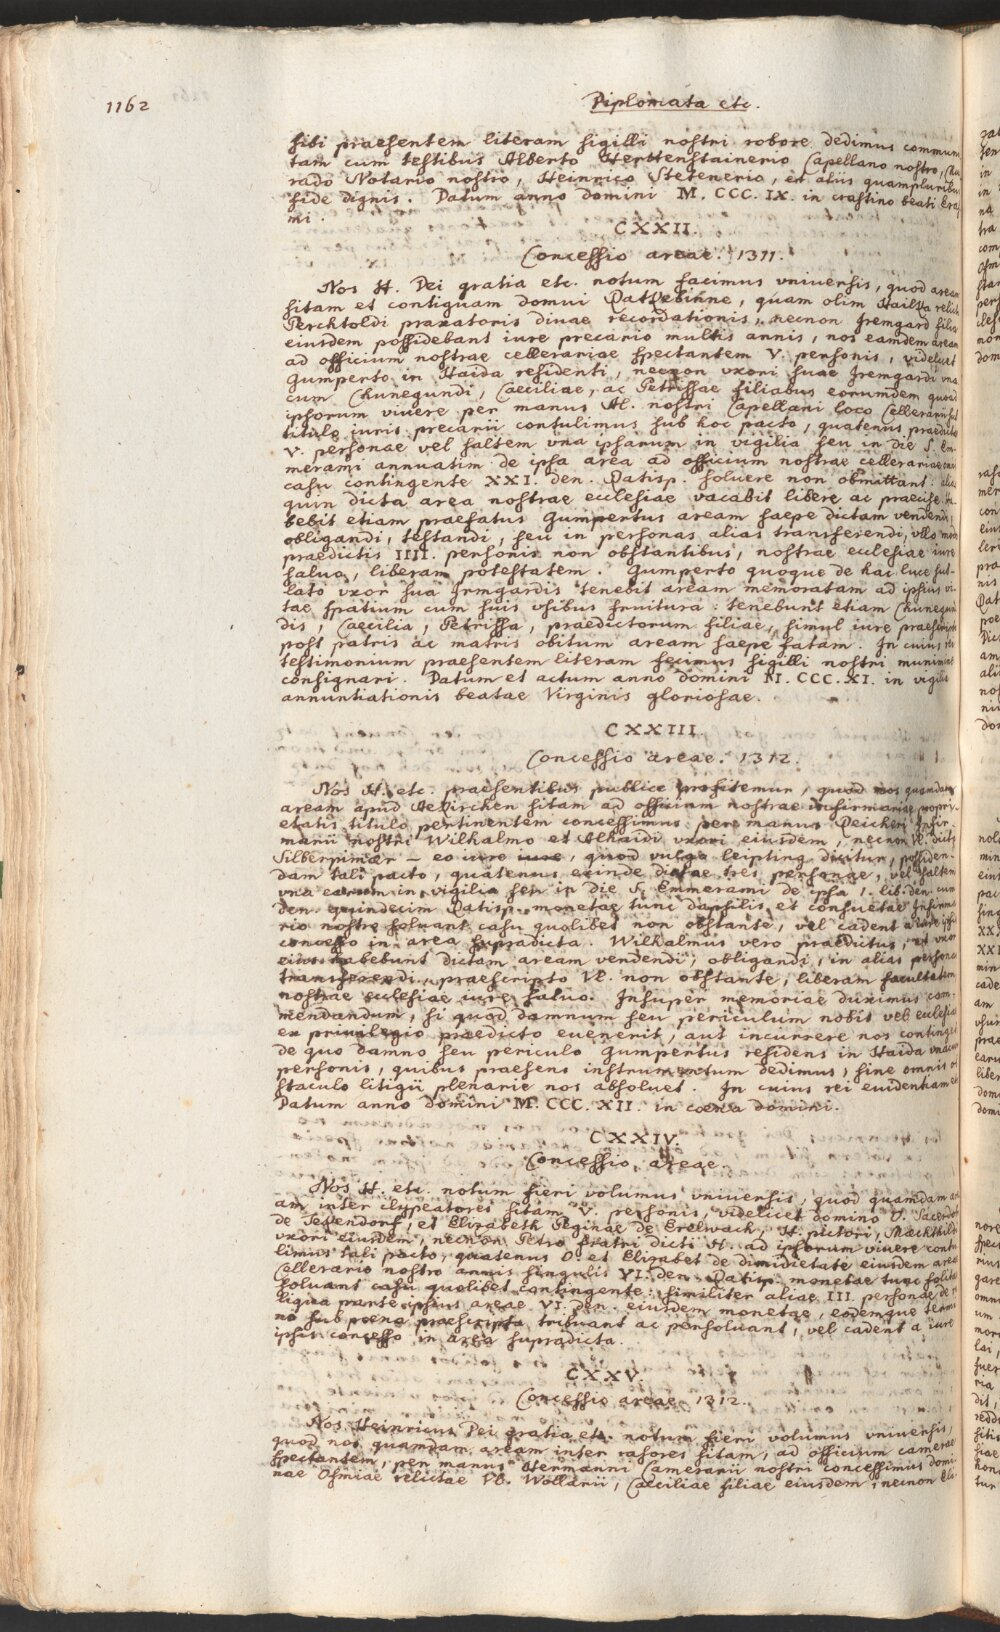 1162
Diplomata etc.
sibi praesentem literam sigilli nostri robore dedimus commun
tam cum testibus Alberto Herttenstainerio Capellano nostro,
rado Notario nostro, Heinrico Stetenerio, et aliis quampluribus
fide dignis. Datum anno domini M. CCC. IX. in crastino beati Eras
mi.
CXXII.
Concessio areae. 1311.
Nos H. Dei gratia etc. notum facimus vniuersis, quod aream
sitam et contiguam domui quam olim relicta
Perchtoldi praxatoris diuae recordationis, necnon Jremgard filia
eiusdem possidebant iure precario multis annis, nos eamdem aream
ad officium nostrae cellerariae spectantem V. personis, videlicet
Gumperto in Haida residenti, necnon vxori suae Jremgardi vna
cum Chunegundi, Caeciliae, ac Petrissae filiabus eorumdem quoad
ipsorum viuere per manus Al. nostri Capellani loco Cellerarii sub
titulo iuris precarii contulimus sub hoc pacto, quatenus praedictae
V. personae vel saltem vna ipsarum in vigilia seu in die S. Em-
merami annuatim de ipsa area ad officium nostrae cellerariae
casu contingente XXI. den. Ratisp. soluere non obmittant alio
quin dicta area nostrae ecclesiae vacabit libere ac praecise. Ha-
bebit etiam praefatus Gumpertus aream saepe dictam vendendi
obligandi, testandi, seu in personas alias transferendi, vllo modo
praedictis IIII. personis non obstantibus, nostrae ecclesiae iure
saluo, liberam potestatem. Gumperto quoque de hac luce sub-
lato vxor sua Jrmgardis tenebit aream memoratam ad ipsius vi-
tae spatium cum suis vsibus fruitura: tenebunt etiam Chunegun
dis, Caecilia, Petrissa, praedictorum filiae, simul iure praescripto
post patris ac matris obitum aream saepe fatam. In cuius rei
testimonium praesentem literam fecimus sigilli nostri munimine
consignari. Datum et actum anno domini M. CCC. XI. in vigilia
annuntiationis beatae Virginis gloriosae.
CXXIII.
Concessio areae. 1312.
Nos H. etc. praesentibus publice profitemur, quod nos quamdam
aream apud sitam ad officium nostrae infirmariae propri-
etatis titulo pertinentem concessimus per manus Reicheri Infir-
marii nostri Wilhalmo et Alhaidi vxori eiusdem, necnon Vl. dicto
eo iure quod vulgo leipting dicitur, possiden-
dam tali pacto, quatenus exinde dictae tres personae, vel saltem
vna earum in vigilia seu in die S. Emmerami de ipsa 1. lib. den. cum
den. quindecim Ratisp. monetae tunc dapsilis et consuetae Infirma
rio nostro soluant casu quolibet non obstante, vel cadent a iure ipsis
concesso in area supradicta. Wilhalmus vero praedictus, et vxor
eius habebunt dictam aream vendendi, obligandi, in alias personas
transferendi, praescripto Vl. non obstante, liberam facultatem
nostrae ecclesiae iure saluo. Insuper memoriae duximus com-
mendandum, si quod damnum seu periculum nobis vel ecclesiae
ex priuilegio praedicto euenerit, aut incurrere nos contingeret
de quo damno seu periculo Gumpertus residens in Haida vna cum
personis, quibus praesens instrumentum dedimus, sine omnis ob
staculo litigii plenarie nos absoluet. In cuius rei euidentiam etc.
Datum anno domini M. CCC. XII. in coena domini.
CXXIV.
Concessio areae.
Nos H. etc. notum fieri volumus vniuersis, quod quamdam are
am inter clypeatores sitam V. personis, videlicet domino O. Sacerdoti
de et Elizabeth Reginae de H. pictori, Maechthildi
vxori eiusdem, necnon Petro fratri dicti H. ad ipsorum viuere contu
limus tali pacto, quatenus O. et Elizabet de dimidietate eiusdem areae
Cellerario nostro annis singulis VI. den. Ratisp. monetae tunc solitae
soluant casu quolibet contingente: similiter aliae III. personae de re
liqua parte ipsius areae VI. den. eiusdem monetae, eodemque termi
no sub poena praescripta tribuant ac persoluant, vel cadent a iure
ipsis concesso in area supradicta.
CXXV.
Concessio areae. 1312.
Nos Heinricus Dei gratia etc. notum fieri volumus vniuersis,
quod nos quamdam aream inter rasores sitam, ad officium camerae
spectantem, per manus Hermanni Camerarii nostri concessimus domi
nae Ofmiae relictae Vlr. Wollarii, Caeciliae filiae eiusdem, necnon